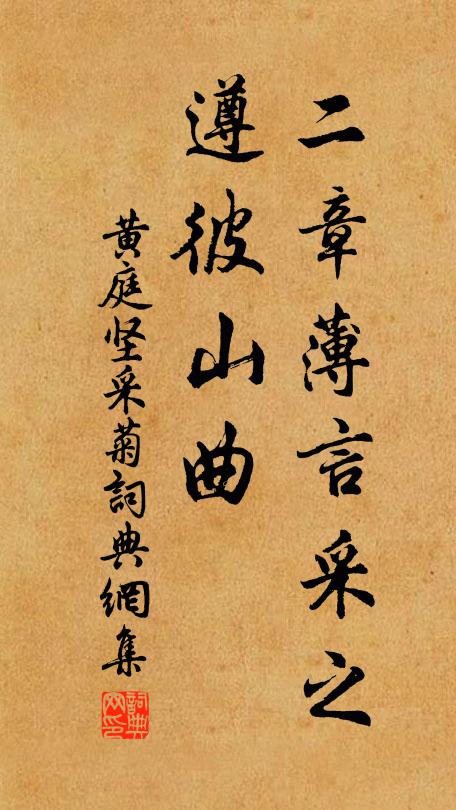 二章薄言采之
遵彼山曲
黄庭坚采菊詞典網集
詞典网印